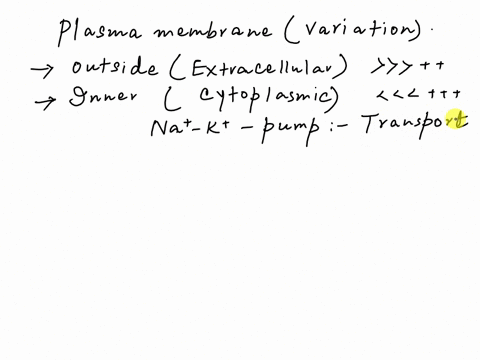 Plasma membrane (Variation).
→ Outside (Extracellular) >>> ++
→ Inner (Cytoplasmic) <<< +++
Na⁺-K⁺-pump :- Transport